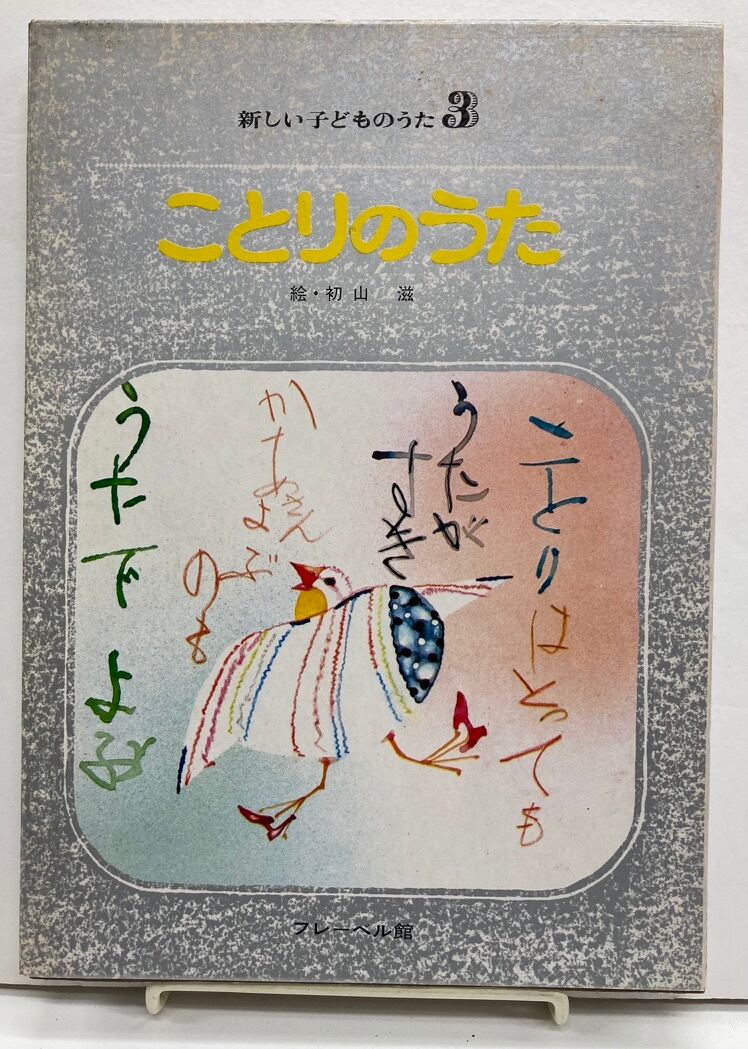 新しい子どものうた3
ことりのうた
絵・初山 滋
ことりはとっても
うたが
すき
かあさん
よぶ
のも
うたで よぶ
フレーベル館